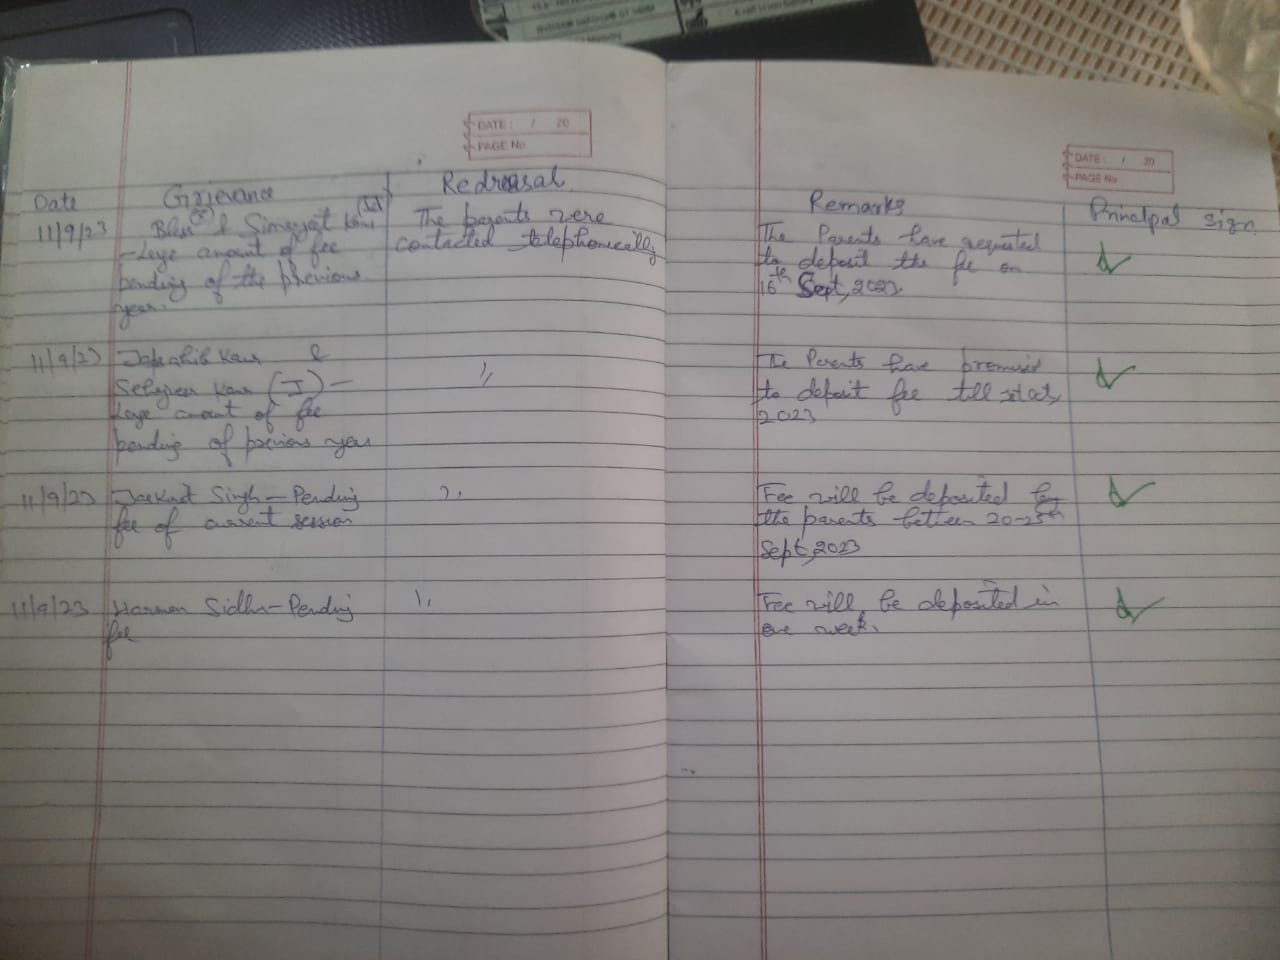 DATE: / 20
PAGE No
DATE: / 20
PAGE No
Date Grievance Redressal
11/9/23 & Simrat Kaur
- Large amount of fee
pending of the previous
year.
The parents were
contacted telephonically
11/9/23 Kaur &
Kaur (I) -
Large amount of fee
pending of previous year
11/9/23 Singh - Pending
fee of current session
11/9/23 Harman Sidhu - Pending
fee
Remarks Principal Sign
The Parents have requested
to deposit the fee on
16th Sept, 2023
The Parents have promised
to deposit fee till
2023
Fee will be deposited by
the parents between 20-25th
Sept, 2023
Fee will be deposited in
one week.